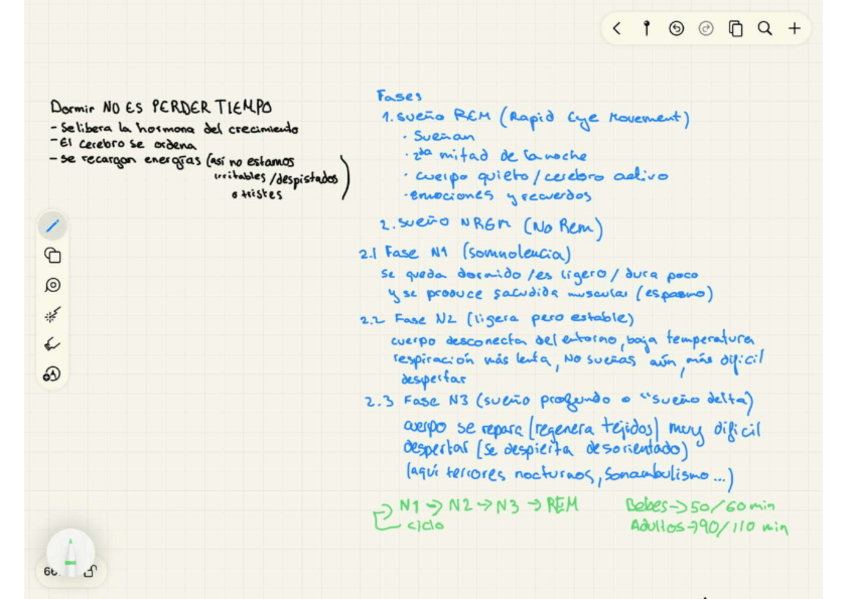 Dormir NO ES PERDER TIEMPO
- Se libera la hormona del crecimiento
- El cerebro se ordena
- se recargan energías (así no estamos
irritables/despistados
o tristes)
Fases
1. sueño REM (Rapid Eye Movement)
· Sueñan
· 2da mitad de la noche
· cuerpo quieto/cerebro activo
· emociones y recuerdos
2. sueño NREM (No Rem)
2.1 Fase N1 (somnolencia)
se queda dormido/es ligero/dura poco
y se produce sacudida muscular (espasmo)
2.2 Fase N2 (ligera pero estable)
cuerpo desconecta del entorno, baja temperatura
respiración más lenta, No sueñas aún, más dificil
despertar
2.3 Fase N3 (sueño profundo o "sueño delta)
cuerpo se repara (regenera tejidos) muy dificil
despertar (se despierta desorientado)
(aquí terrores nocturnos, sonambulismo...)
N1 → N2 → N3 → REM
ciclo
Bebes → 50/60 min
Adultos → 90/110 min